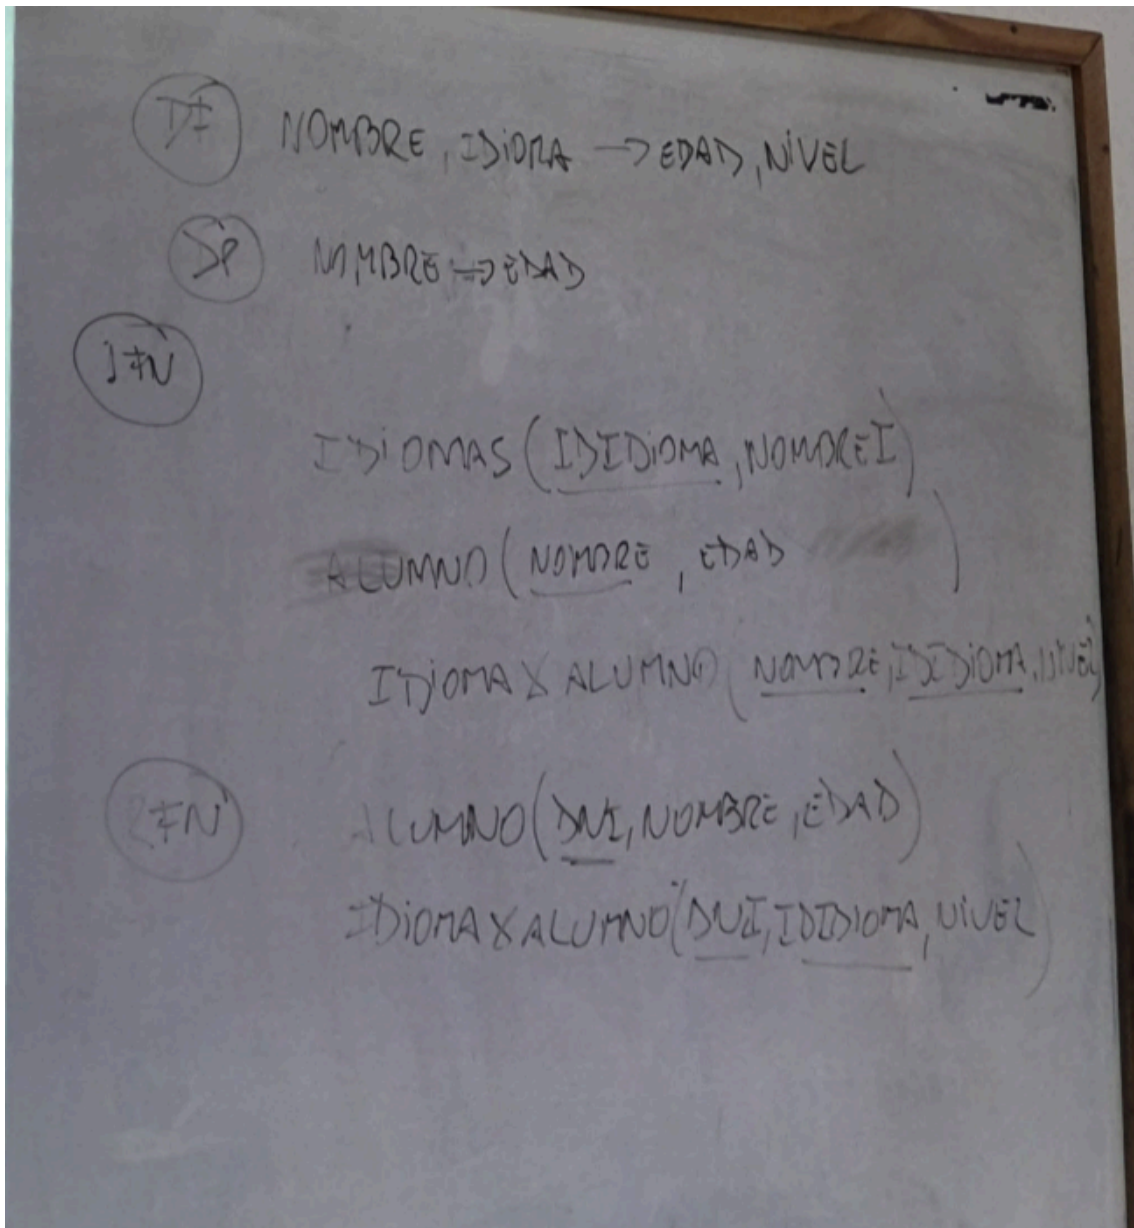 DF NOMBRE, IDIOMA → EDAD, NIVEL
DP NOMBRE → EDAD
1FN
IDIOMAS (IDIDIOMA, NOMBREI)
ALUMNO (NOMBRE, EDAD )
IDIOMAXALUMNO (NOMBRE, IDIDIOMA, NIVEL)
2FN ALUMNO (DNI, NOMBRE, EDAD)
IDIOMAXALUMNO (DNI, IDIDIOMA, NIVEL)